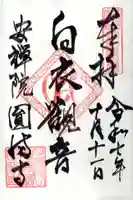 奉拝
令和七年
十月十二日
白衣観音
安禅院圓通寺